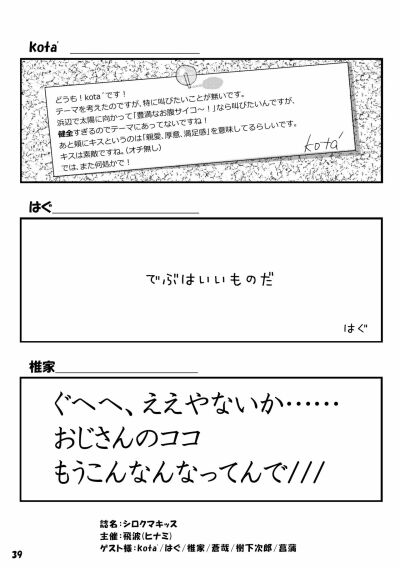 kota'
どうも！kota'です！
テーマを考えたのですが、特に叫びたいことが無いです。
浜辺で太陽に向かって「豊満なお腹サイコ～！」なら叫びたいんですが、
健全すぎるのでテーマにあってないですね！
あと頬にキスというのは「親愛、厚意、満足感」を意味してるらしいです。
キスは素敵ですね。（オチ無し）
では、また何処かで！
kota'
はぐ
でぶはいいものだ
はぐ
椎家
ぐへへ、ええやないか……
おじさんのココ
もうこんなんなってんで///
誌名：シロクマキッス
主催：飛波(ヒナミ)
ゲスト様：kota'/はぐ/椎家/蒼哉/樹下次郎/菖蒲
39